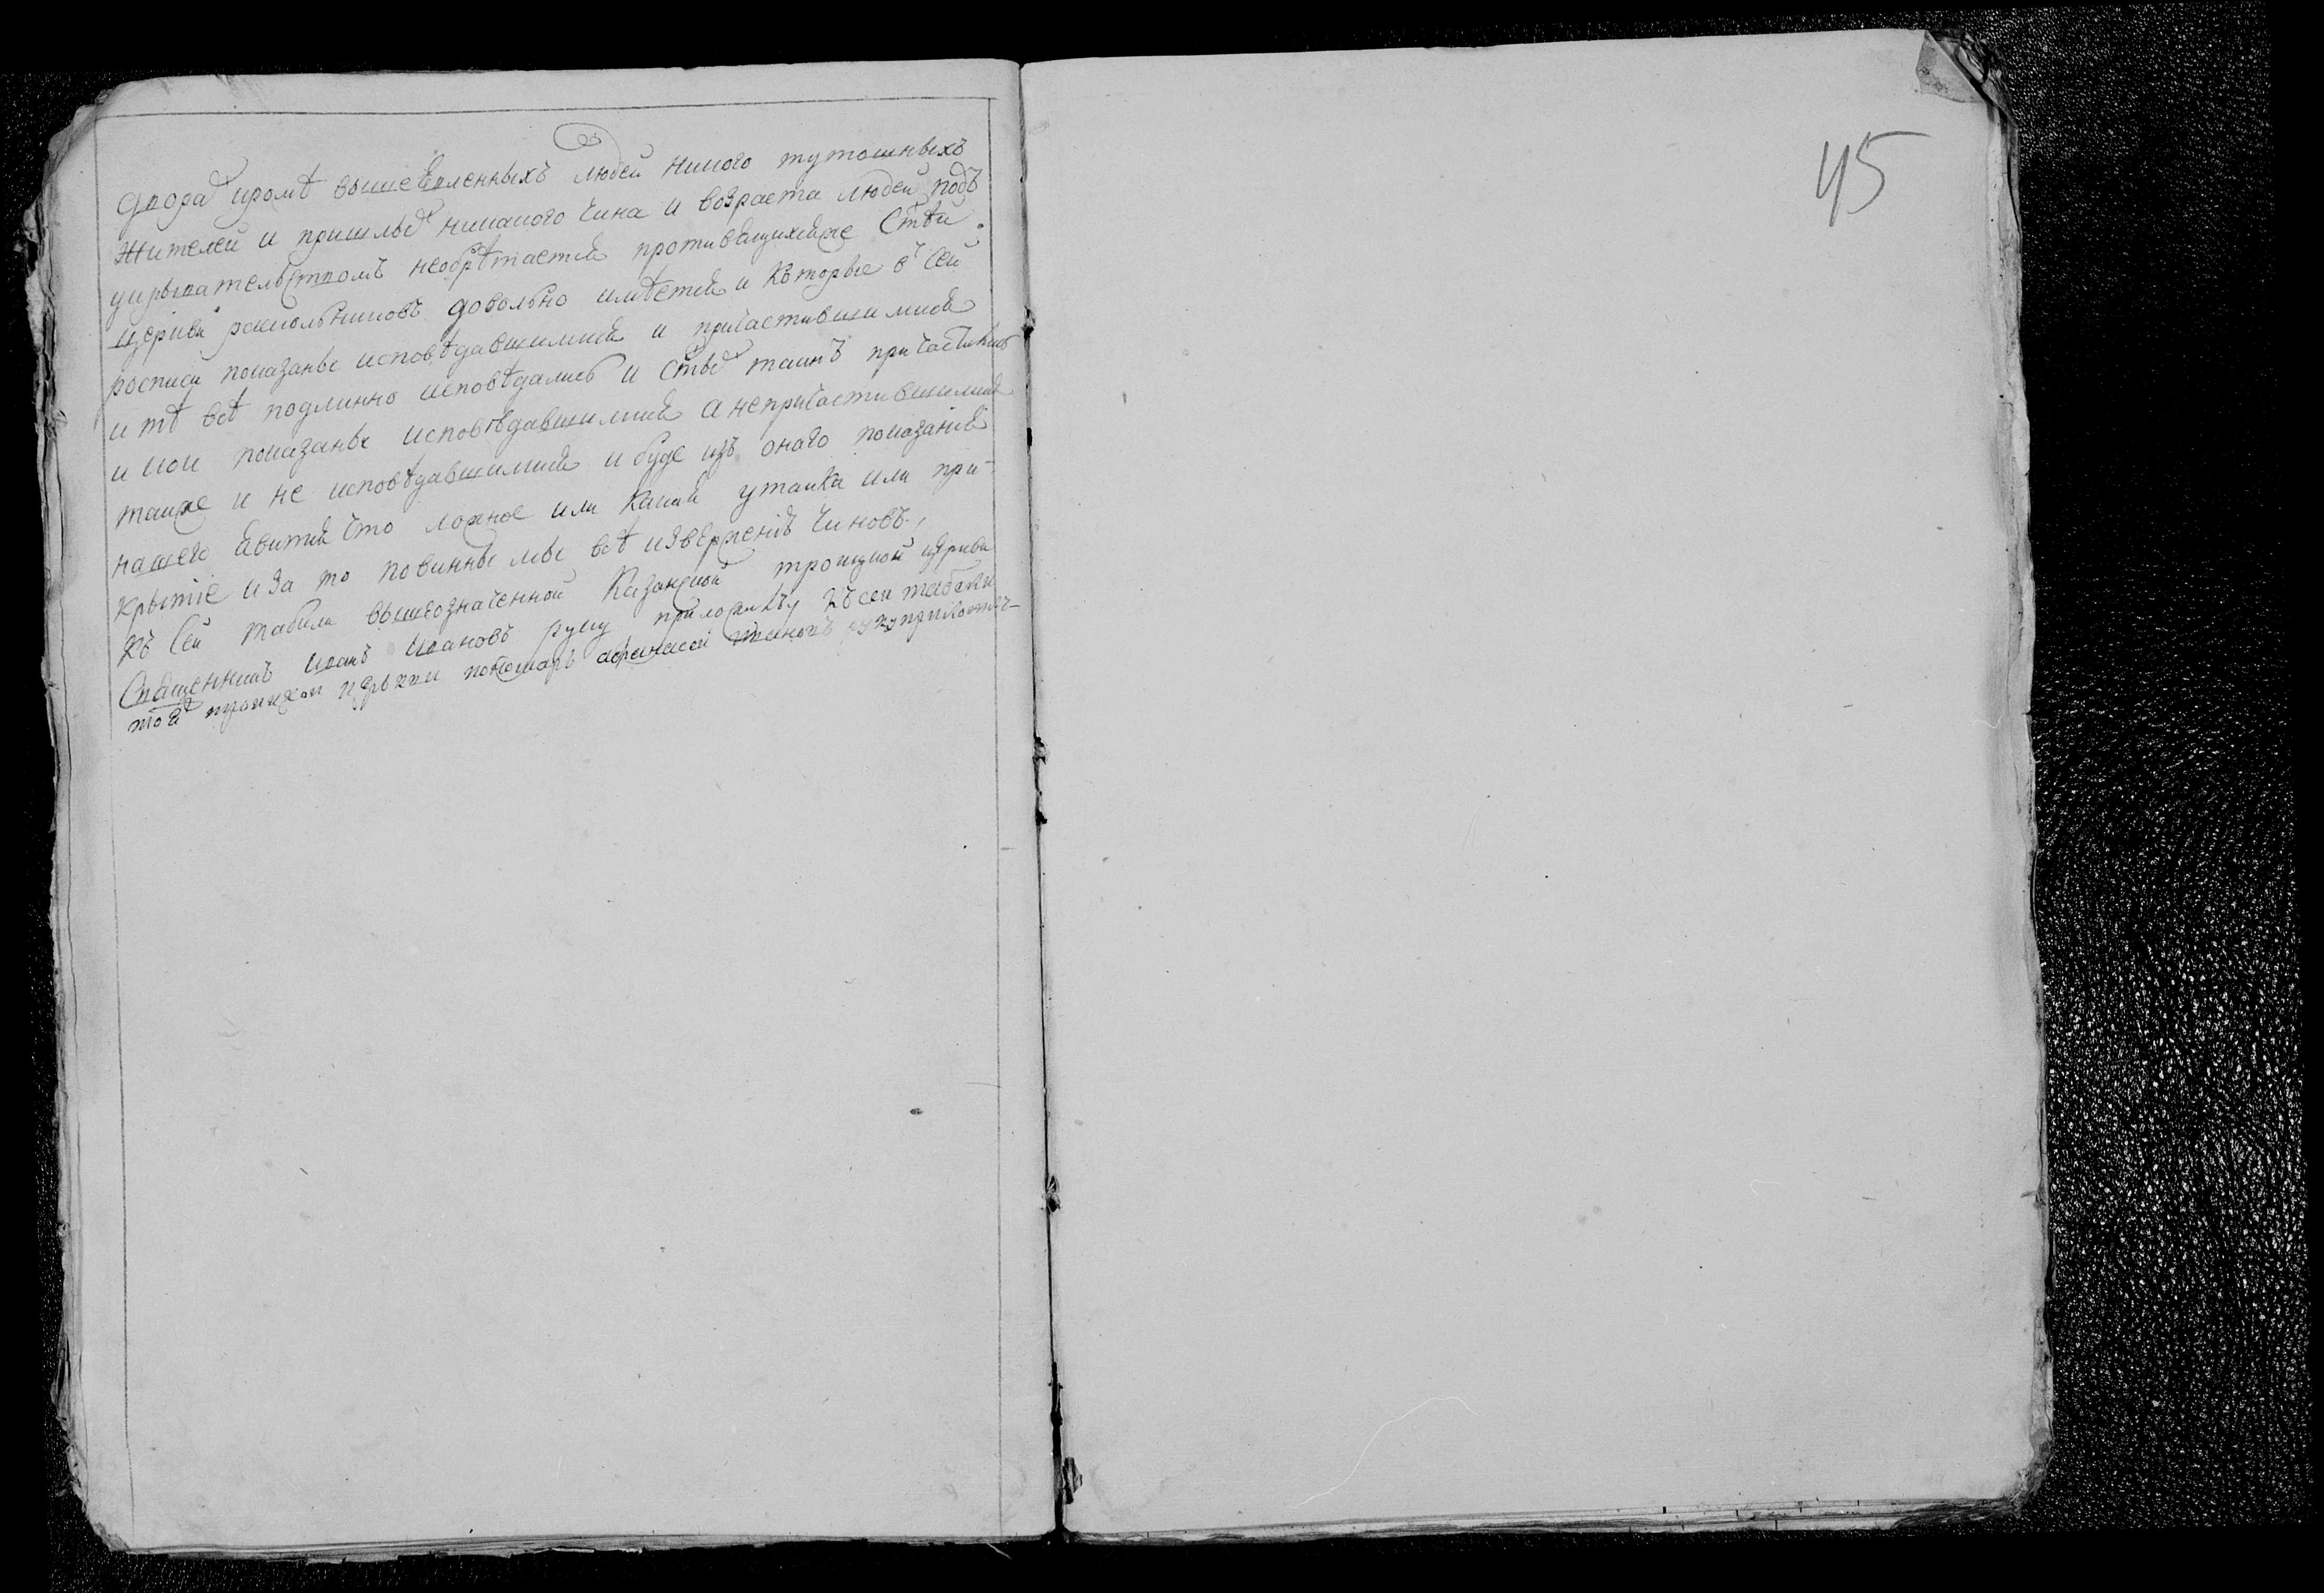 дворахъ кромѣ вышеявленныхъ людей никого тутошныхъ
жителей и пришлыхъ никакого чина и возраста людей подъ
укрывательствомъ необрѣтается противящихсяже Стѣй
церкви раскольниковъ довольно имѣется и которые в сей
росписи показаны исповѣдавшимися и причастившимися
и тѣ всѣ подлинно исповѣдались и Стыхъ таинъ причастились
и кои показаны исповѣдавшимися а непричастившимися
также и не исповѣдавшимися и буде изъ онаго показания
нашего явится что ложное или какая утайка или при-
крытие и за то повинны мы всѣ извержению чиновъ,
къ сей табели вышеозначенной Казанской троицкой церкви
Священникъ иванъ ивановъ руку приложилъ къ сеи табели
тоя троицкои церькви пономарь афанасей руку приложилъ
45